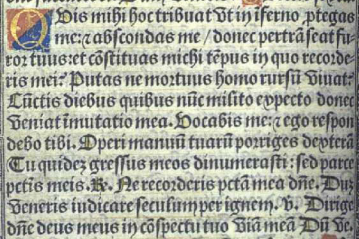 Quis mihi hoc tribuat vt in iferno ꝓtegas
me: ⁊ abscondas me / donec pertrãseat fu-
ror tuus: et cõstituas michi tẽpus in quo recorde-
ris mei? Putas ne mortuus homo rursũ viuat?
Cũctis diebus quibus nũc milito expecto donec
veniat ĩmutatio mea. Vocabis me: ⁊ ego respon
debo tibi. Operi manuũ tuarũ porriges dexterã
Tu quidez gressus meos dinumerasti: sed parce
pctis meis. R. Ne recorderis pctã mea dñe. Duz
veneris iudicare seculum per ignem. v. Dirige
dñe deus meus in cõspectu tuo viã meã Dũ ve.